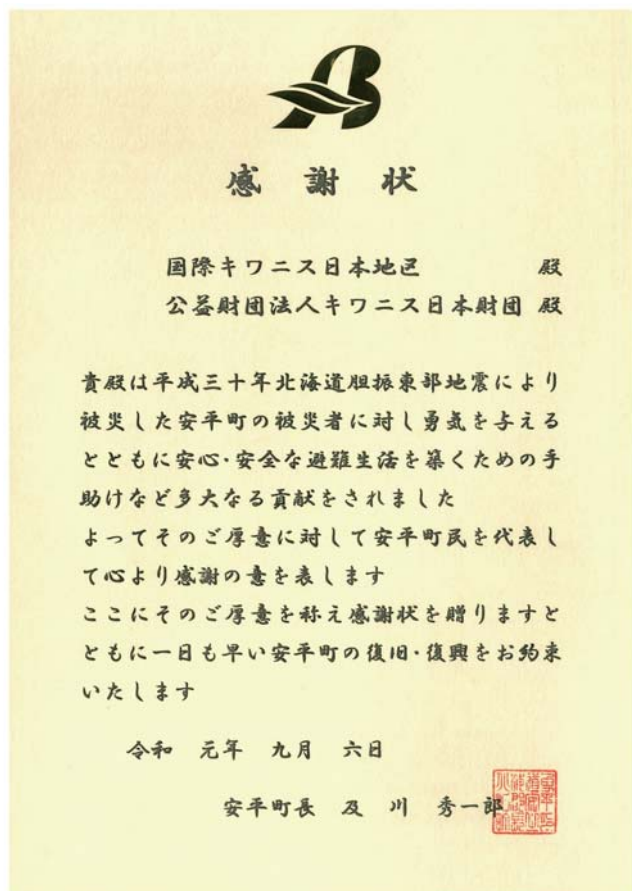 感謝状
国際キワニス日本地区 殿
公益財団法人キワニス日本財団 殿
貴殿は平成三十年北海道胆振東部地震により
被災した安平町の被災者に対し勇気を与える
とともに安心・安全な避難生活を築くための手
助けなど多大なる貢献をされました
よってそのご厚意に対して安平町民を代表し
て心より感謝の意を表します
ここにそのご厚意を称え感謝状を贈りますと
ともに一日も早い安平町の復旧・復興をお約束
いたします
令和 元年 九月 六日
安平町長 及川 秀一郎